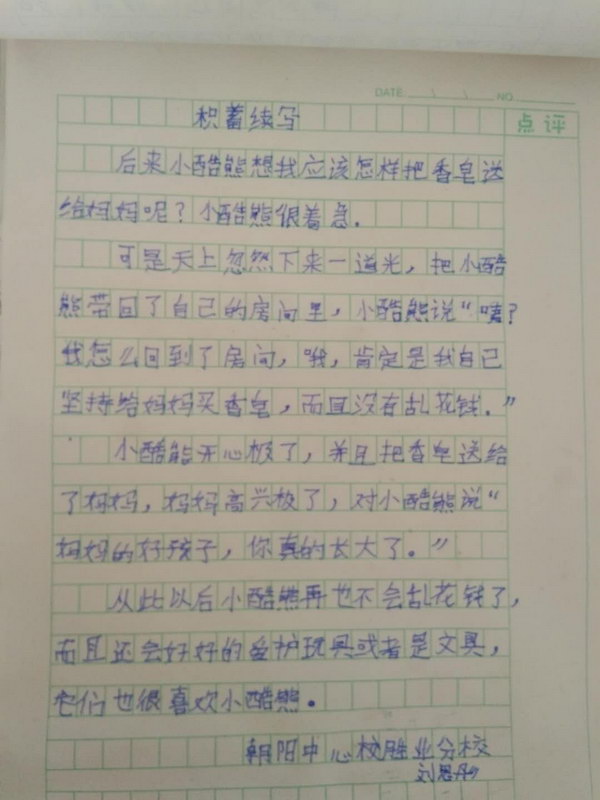 DATE NO
积蓄续写 点评
后来小酷熊想我应该怎样把香皂送
给妈妈呢？小酷熊很着急.
可是天上忽然下来一道光，把小酷
熊带回了自己的房间里，小酷熊说“咦?
我怎么回到了房间，哦，肯定是我自己
坚持给妈妈买香皂，而且没有乱花钱.”
小酷能开心极了，并且把香皂送给
了妈妈，妈妈高兴极了，对小酷熊说“
妈妈的好孩子，你真的长大了。”
从此以后小酷熊再也不会乱花钱了，
而且还会好好的爱护玩具或者是文具，
它们也很喜欢小酷熊。
朝阳中心校胜业分校
刘思丹